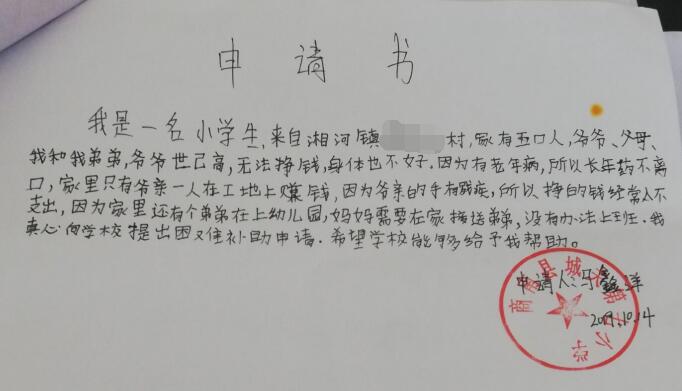 申请书
我是一名小学生,来自湘河镇村,家有五口人,爷爷、父母、
我和我弟弟,爷爷世已高,无法挣钱,身体也不好.因为有老年病,所以长年药不离
口,家里只有爷亲一人在工地上赚钱,因为爷亲的手有残疾,所以挣的钱经常入不
支出,因为家里还有个弟弟在上幼儿园,妈妈需要在家接送弟弟,没有办法上班.我
真心向学校提出困难补助申请.希望学校能够给予我帮助。
申请人:马鑫洋
10.14
商县城关第小学